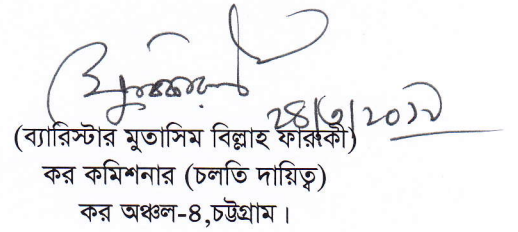 (ব্যারিস্টার মুতাসিম বিল্লাহ ফারুকী)
কর কমিশনার (চলতি দায়িত্ব)
কর অঞ্চল-৪,চট্টগ্রাম।